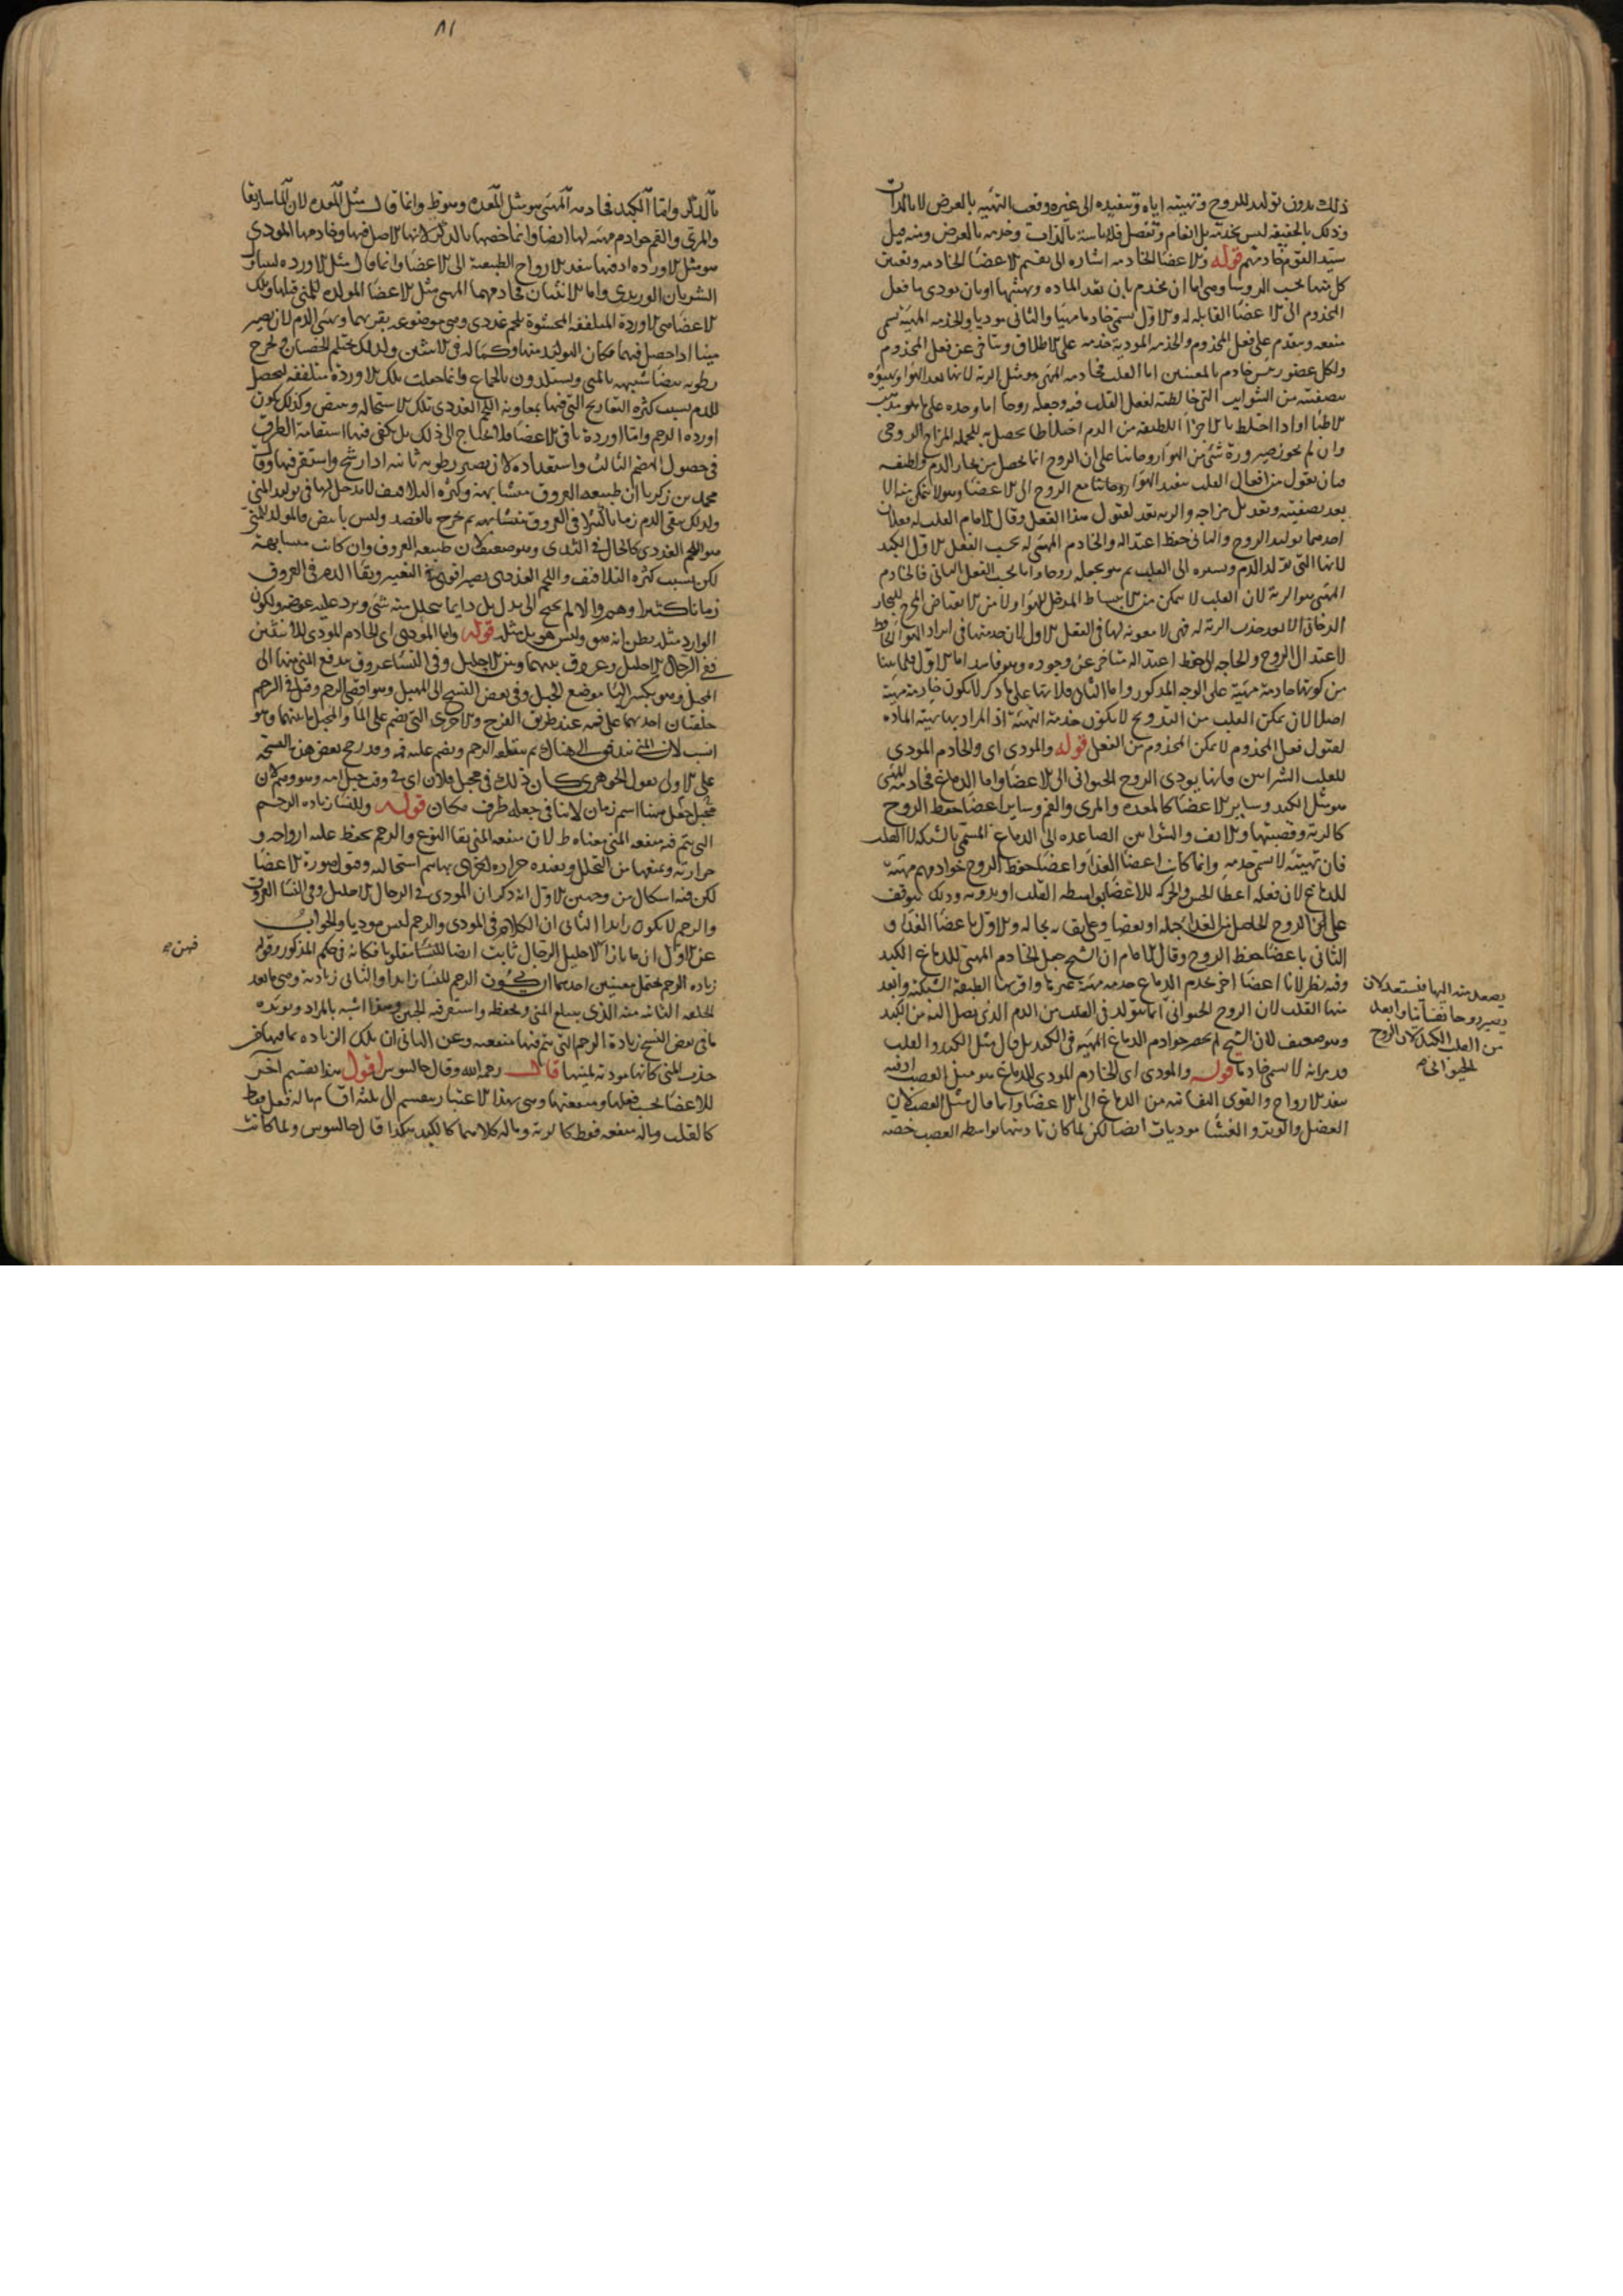 ذلك بدون توليد للروح وتهيئته اياه وتنفيذه الى غيره وقعت التهيئة بالعرض لا بالذات
وذلك بالحقيقة ليس بخدمة بل انعام وتفضل فلرئاسة بالذات وخدمة بالعرض ومنه قيل
سيد القوم خادمهم قوله والاعضا الخادمه اشاره الى تقسيم الاعضا الخادمه وتعيين
كل منها بحسب الروسا وهي اما ان يخدم بان يعد الماده ويهيئها او بان يودي ما فعل
المخدوم الى الاعضا القابله له والاول يسمى خادما مهيئا والثاني موديا والخدمه المهيئة تسمى
منفعه ويتقدم على فعل المخدوم والخدمه المودية خدمه على الاطلاق ويتاخر عن فعل المخدوم
ولكل عضو رئيس خادم بالمعنيين اما القلب فخادمه المهيئ هو مثل الرية لانها تعد الهوا
بتصفيته من الشوايب التي خالطته لفعل القلب فيه وجعله روحا اما وحده على
الاطبا او اذا اختلط بالاجزا اللطيفه من الدم اختلاطا يحصل به للجمله المزاج الروحي
وان لم يجوز صيرورة شي من الهوا روحا بنا على ان الروح انما يحصل من بخار الدم ولطيفه
فبان يقول من افعال القلب تنفيذ الهوا مع الروح الى الاعضا وهو لا يمكن منه الا
بعد تصفيته وتعديل مزاجه والرية تعد لقبول هذا الفعل وقال الامام القلب له فعلان
احدهما توليد الروح والثاني حفظ اعتداله والخادم المهيئ له بحسب الفعل الاول الكبد
لانها التي تولد الدم وتسيره الى القلب ثم هو يجعله روحا واما بحسب الفعل الثاني فالخادم
المهيئ هو الرية لان القلب لا يمكن من الانبساط المدخل للهوا ولا من الانقباض المخرج للبخار
الدخاني الا بعد جذب الرية له فهي لا معونه لها في الفعل الاول لان خدمتها في ايراد الهوا الحافظ
لاعتدال الروح والحاجه الى حفظ اعتداله متاخر عن وجوده وهو فاسد اما الاول فلما بينا
من كونها خادمة مهيئة على الوجه المذكور واما الثاني فلانها على ما ذكر لا يكون خادمة مهيئة
اصلا لان تمكن القلب من الترويح لا يكون خدمة التهيئة اذ المراد بها تهيئة الماده
لقبول فعل المخدوم لا تمكن المخدوم من الفعل قوله والمودي اى والخادم المودي
للقلب الشرايين فانها يودى الروح الحيواني الى الاعضا واما الدماغ فخادمه المهيئ
هو مثل الكبد وساير الاعضا كالمعده والمرى والفم وساير اعضا حفظ الروح
كالرية وقصبتها والانف والشرايين الصاعده الى الدماغ المسمى بالشبكه لا القلب
فان تهيئته لا تسمى خدمه وانما كانت اعضا الغذا واعضا حفظ الروح خوادمه مهيئة
للدماغ لان فعله اعطا الحس والحركه للاعضا بواسطه القلب او بدونه وذلك يتوقف
على الروح الحاصل من الغذا جمله او بعضا وعلى بقايه بحاله والاول باعضا الغذا و
الثاني باعضا حفظ الروح وقال الامام ان الشيخ جعل الخادم المهيئ للدماغ الكبد
وفيه نظر لان اعضا اخر يخدم الدماغ خدمه مهيئة غيرها واقربها الطبقة الشبكيه وابعد
منها القلب لان الروح الحيواني انما يتولد في القلب من الدم الذي يصل اليه من الكبد
وهو ضعيف لان الشيخ لم يحصر خوادم الدماغ المهيئه في الكبد بل قال مثل الكبد والقلب
قد مر انه لا يسمى خادما قوله والمودى اى الخادم المودي للدماغ هو مثل العصب اذ فيه
تنفذ الارواح والقوى النفسانيه من الدماغ الى الاعضا وانما قال مثل العصب لان
العضل والوتر والغشا موديات ايضا لكن لما كان تاديتها بواسطه العصب خصه
يصعد منه اليها فتستعد لان
يصير روحا نفسانيا وابعد
من القلب الكبد لان الروح
الحيواني
٨١
بالذكر واما الكبد فخادمه المهيئ هو مثل المعده وهو ظ وانما قال مثل المعده لان الماساريقا
والمرى والفم خوادم مهيئه لها ايضا وانما خصها بالذكر لانها الاصل فيها وخادمها المودي
هو مثل الاورده اذ فيها تنفذ الارواح الطبيعية الى الاعضا وانما قال مثل الاورده لتناول
الشريان الوريدي واما الانثيان فخادمهما المهيئ مثل الاعضا المولده للمني قبلها وتلك
الاعضا هي الاوردة الملتففه المحشوة بلحم غددي وهي موضوعه بقربهما ويهيئ الدم لان يصير
منيا اذا حصل فيهما فكان التولد منها وكماله في الانثيين ولذلك يحتلم الخصيان ويخرج
رطوبه بيضا شبيهه بالمني ويستلذون بالجماع وانما جعلت تلك الاوردة ملتففه ليحصل
للدم بسبب كثره التعاريج التي فيها بمعاونة اللحم الغددي تلك الاستحاله ويبيض وكذلك يكون
اورده الرحم واما اوردة باقي الاعضا فلا احتياج الى ذلك بل يكفي فيها استقامة الطرق
في حصول الهضم الثالث واستعداده لان يصير رطوبه ثانيه اذا رشح واستقر فيها وقال
محمد بن زكريا ان طبيعه العروق متشابهة وكثره التلافيف لا مدخل لها في توليد المني
ولذلك يبقى الدم زمانا كثيرا في العروق متشابهه ثم يخرج بالفصد وليس بابيض فالمولد للمني
هو اللحم الغددي كالحال في الثدى وهو ضعيف لان طبيعه العروق وان كانت متشابهة
لكن بسبب كثره التلافيف واللحم الغددي يصير اقوى في التغيير وبقا الدم في العروق
زمانا كثيرا وهم والا لم يحتج الى بدل بل دايما يتحلل منه شي ويرد عليه عوضه ولكون
الوارد مثله يظن انه هو وليس هو بل مثله قوله واما المودي اى الخادم المودي للانثيين
ففي الرجال الاحليل وعروق بينهما وبين الاحليل وفي النسا عروق يدفع المني منها الى
المحبل وهو بكسر البا موضع الحبل وفي بعض النسخ الى المهبل وهو اقصى الرحم وقيل في الرحم
حلقتان احديهما على فمه عند طرف الفرج والاخرى التي ينضم على الما والمحبل ما بينهما وهو
انسب لان المني يندفق الى هناك ثم ينقله الرحم وينضم عليه فمه وقد رجح بعض هذه النسخه
على الاولى بقول الجوهري كان ذلك في محبل فلان اى في وقت حبل امه وهو وهم لان
محبل جعل ههنا اسم زمان لا ينافي جعله ظرف مكان قوله وللنسا زياده الرحم
التي يتم فيه منفعه المني معناه ظ لان منفعه المني بقا النوع والرحم يحفظ عليه ارواحه و
حرارته ويمنعها من التحلل ويفيده حراره اخرى بها يتم استحالته وقبول صورة الاعضا
لكن فيه اشكال من وجهين الاول انه ذكر ان المودى في الرجال الاحليل وفي النسا العروق
والرحم لا يكون زايدا الثاني ان الكلام في المودي والرحم ليس موديا والجواب
عن الاول ان ما بازا الاحليل الرجال ثابت ايضا للنسا مقلوبا فكانه في حكم المذكور وقوله
زياده الرحم يحتمل معنيين احدهما ان يكون الرحم للنسا زايدا والثاني زيادته وهي ما بعد
الحلقه الثانيه منه الذي يبلع المني ويحفظه واستقر فيه الجنين وهذا اشبه بالمراد ويويده
ما في بعض النسخ زيادة الرحم التي يتم فيها منفعته وعن الثاني ان تلك الزياده بما فيها من
جذب المني كانها مودية لمنيها قال رحمه الله وقال جالينوس اقول هذا تقسيم آخر
للاعضا بحسب فعلها ومنفعتها وهي بهذا الاعتبار ينقسم الى ثلثه اقسام ما له فعل فقط
كالقلب وما له منفعه فقط كالرية وما له كلاهما كالكبد هكذا قال جالينوس ولما كانت
فهن